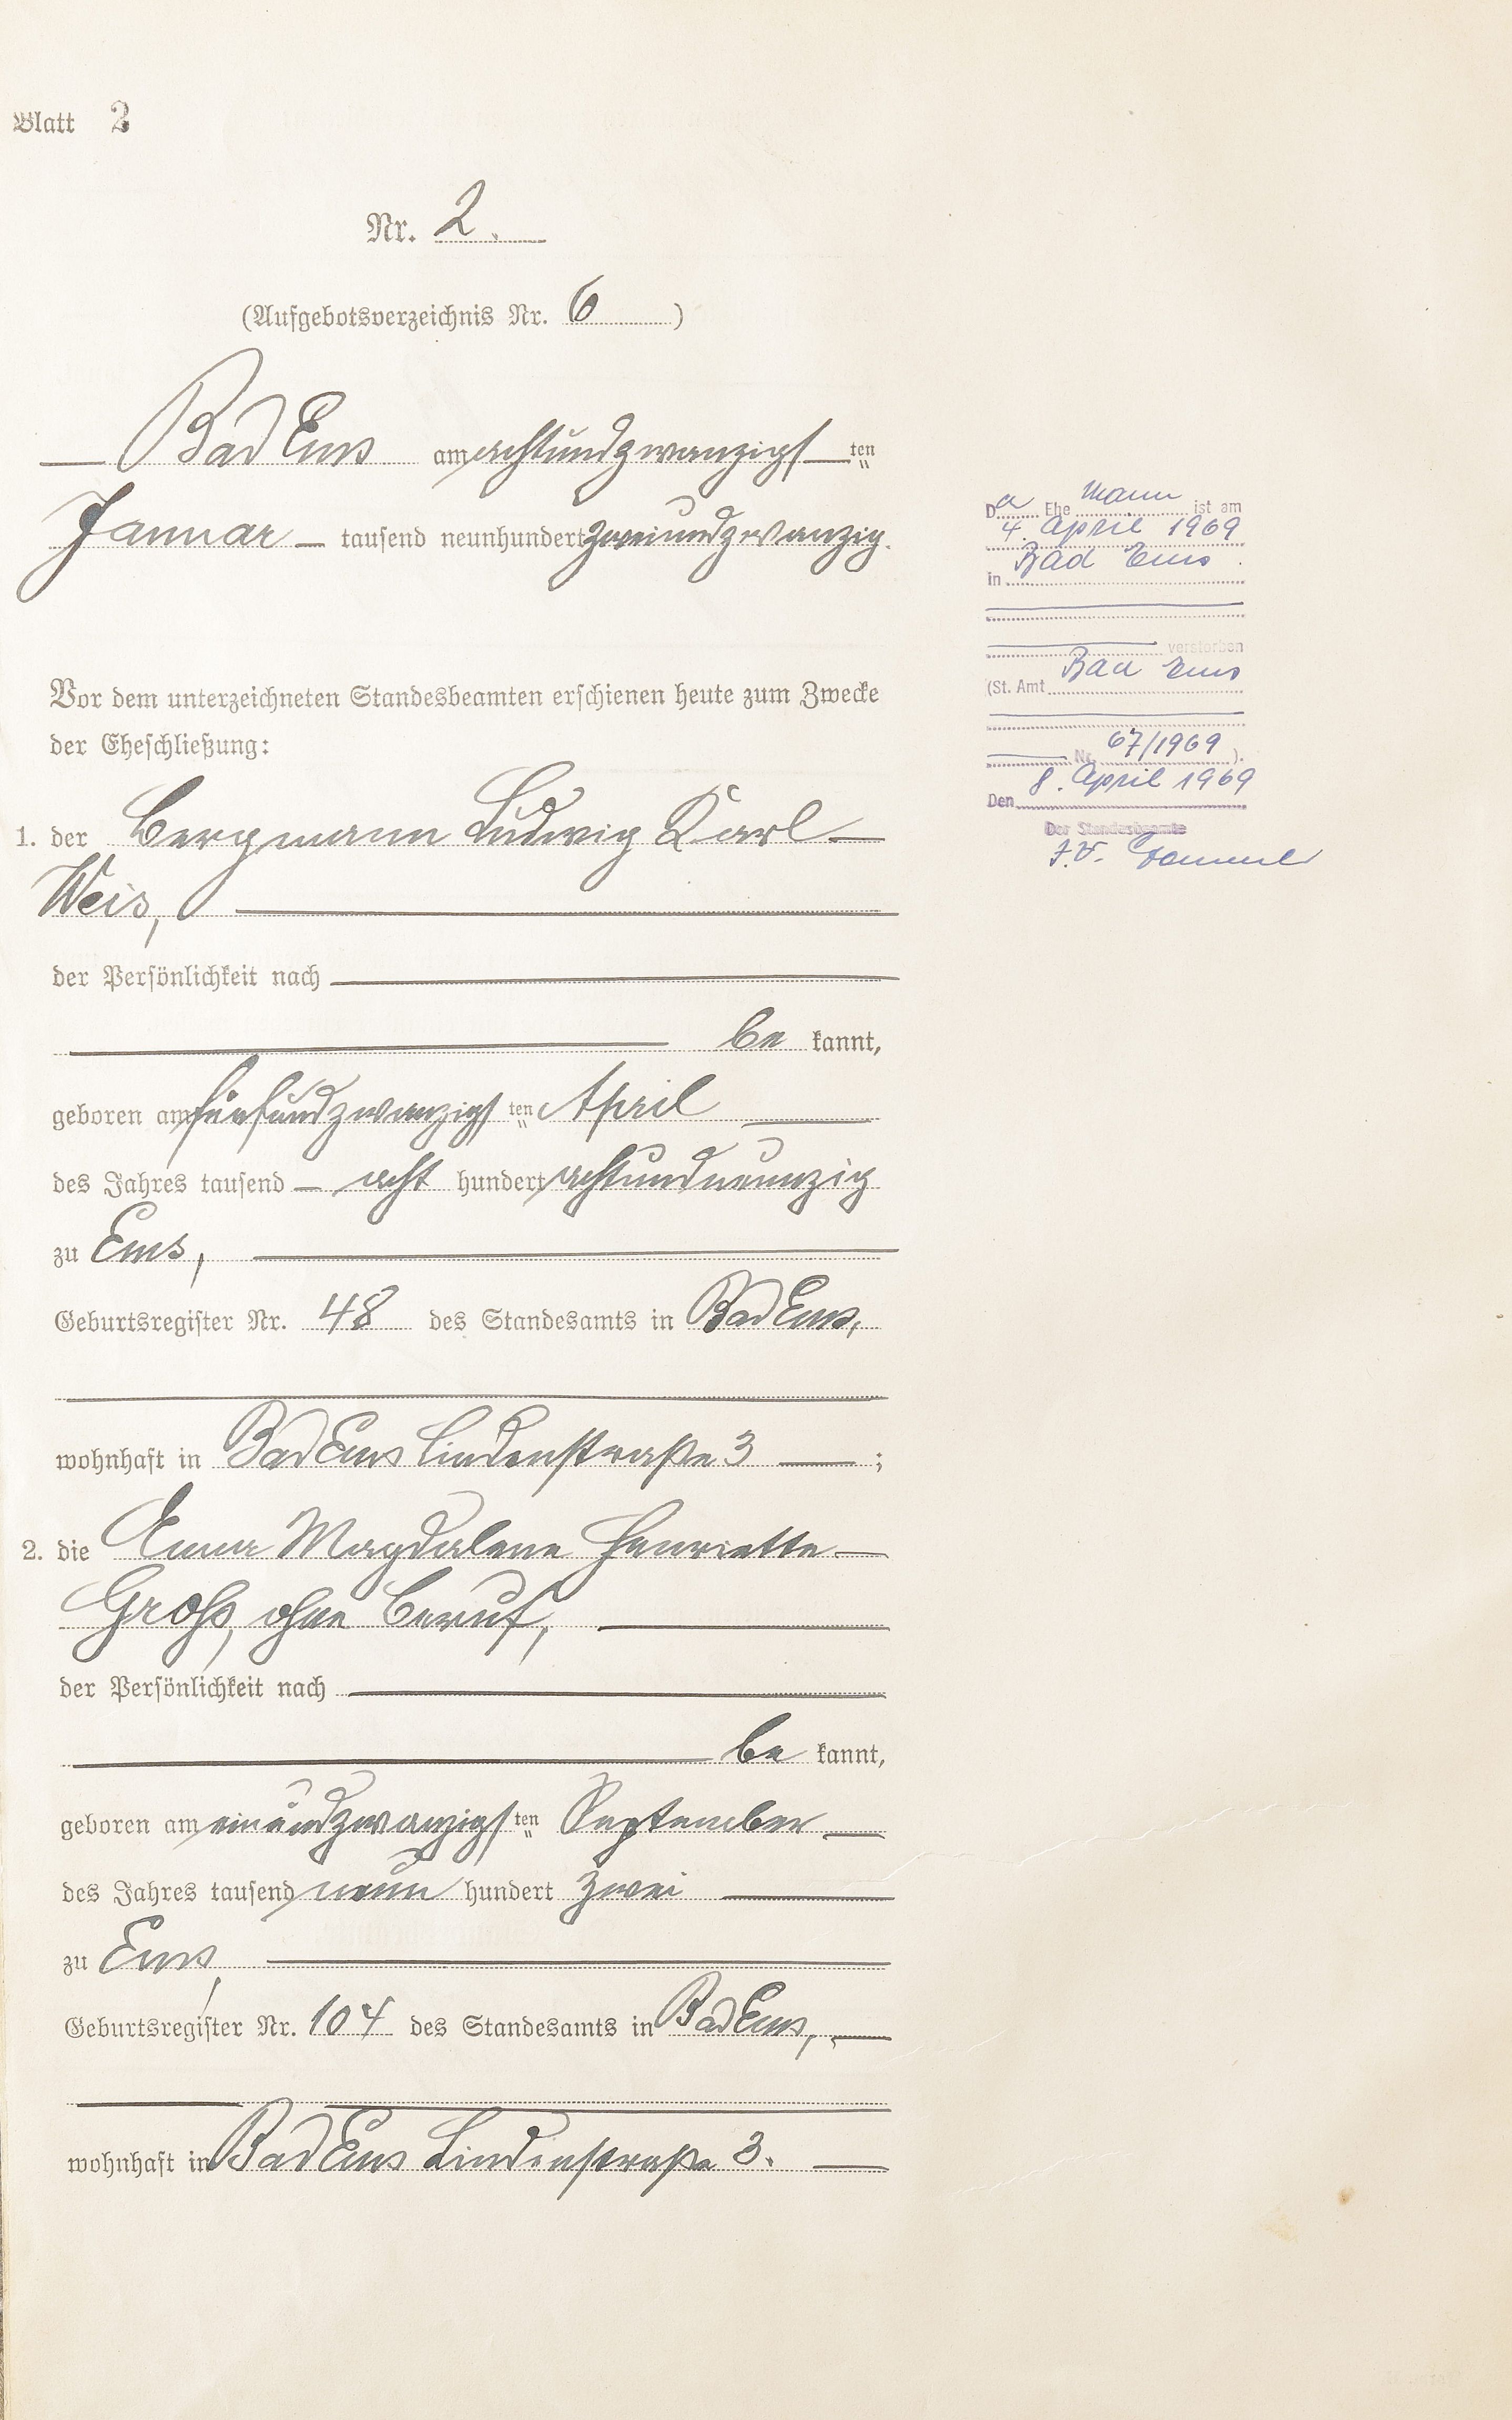 Blatt 2
Nr. 2.
(Aufgebotsverzeichnis Nr. 6 )
Bad Ems am achtundzwanzigs ten
Januar tausend neunhundert zweiundzwanzig.
Vor dem unterzeichneten Standesbeamten erschienen heute zum Zwecke
der Eheschließung:
1. der Bergmann Ludwig Karl
Weis,
der Persönlichkeit nach
be kannt,
geboren am fünfundzwanzigs ten April
des Jahres tausend acht hundert achtundneunzig
zu Ems,
Geburtsregister Nr. 48 des Standesamts in Bad Ems,
wohnhaft in Bad Ems Lindenstraße 3 ;
2. die Magdalene Henriette
Groß, ohne Beruf,
der Persönlichkeit nach
be kannt,
geboren am einundzwanzigs ten September
des Jahres tausend neun hundert zwei
zu Ems,
Geburtsregister Nr. 104 des Standesamts in Bad Ems,
wohnhaft in Bad Ems Lindenstraße 3.
D Ehe mann ist am
4. April 1969
in Bad Ems
verstorben
(St. Amt Bad Ems
Nr. 67/1969 ).
Den 8. April 1969
Der Standesbeamte